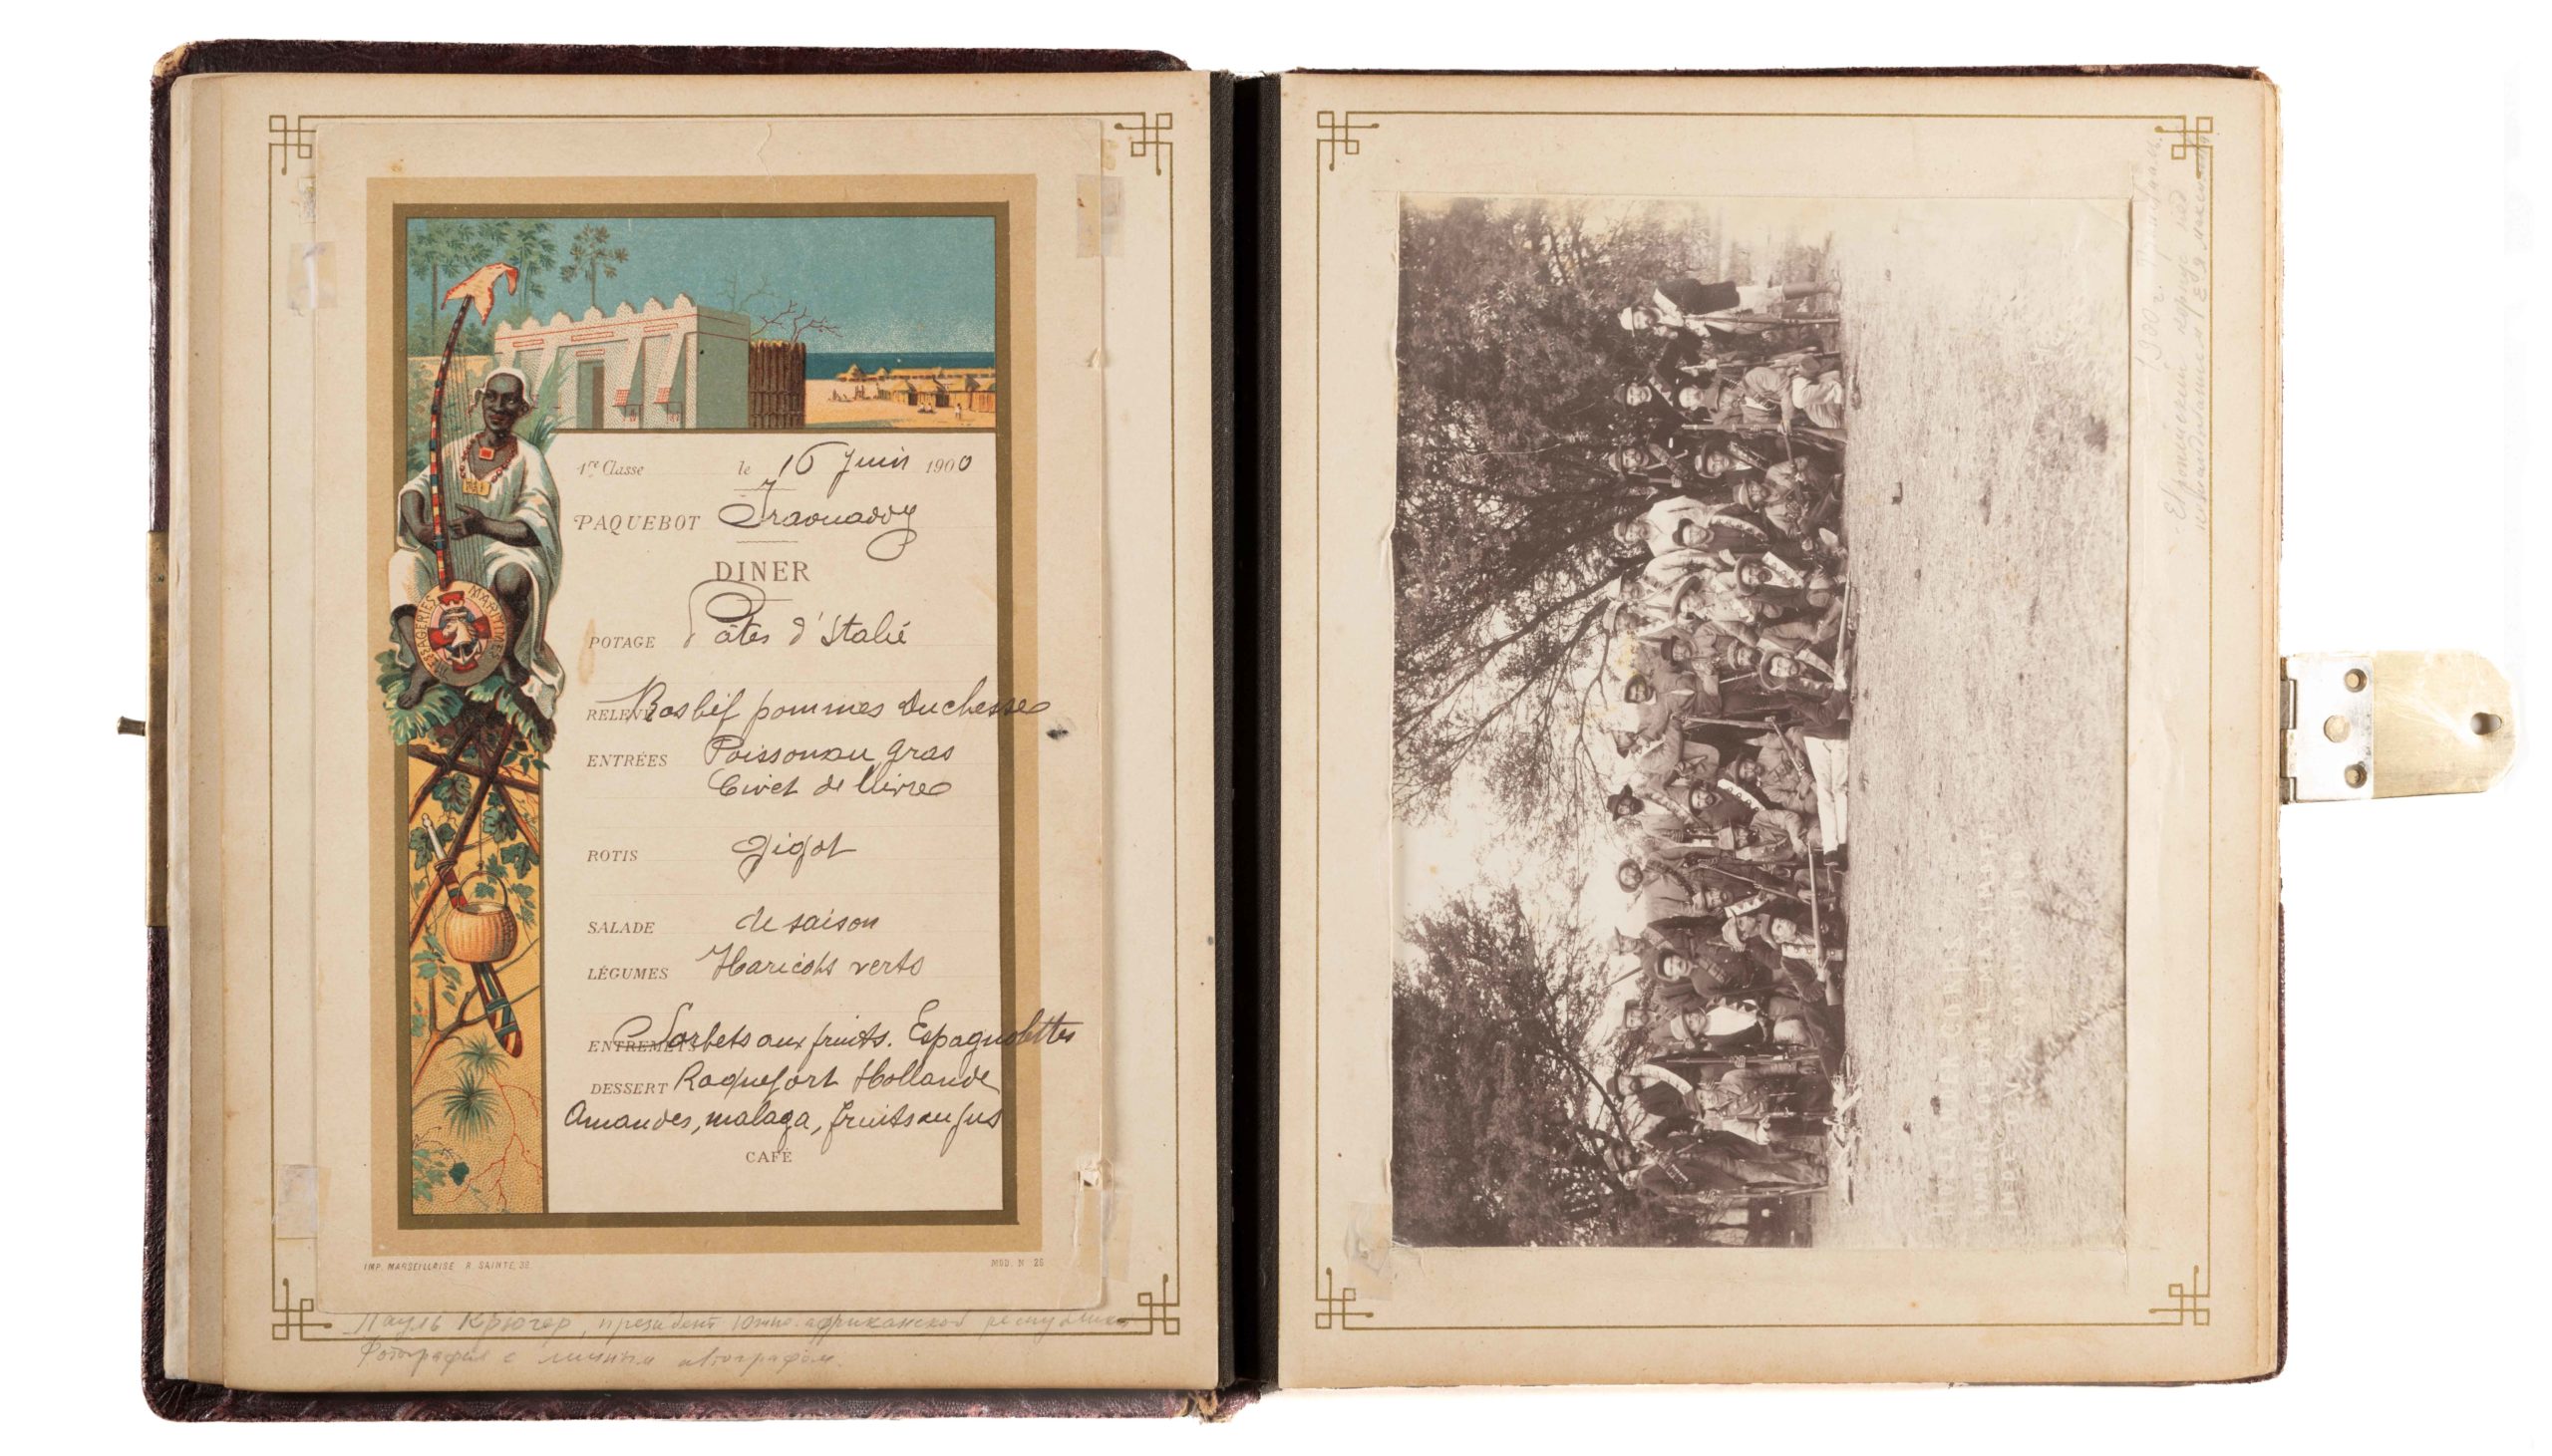 1re Classe le 16 Juin 1900
PAQUEBOT Iraouaddy
DINER
POTAGE Pâtes d'Italie
RELEVÉ Rosbif pommes Duchesse
ENTRÉES Poisson au gras
Civet de lièvre
ROTIS Gigot
SALADE de saison
LÉGUMES Haricots verts
ENTREMETS Sorbets aux fruits. Espagnolettes
DESSERT Roquefort Hollande
Amandes, malaga, fruits au jus
CAFÉ
MESSAGERIES MARITIMES
IMP. MARSEILLAISE R SAINTE, 39.
MOD. N 25
Пауль Крюгер, президент Южно-африканской республики
Фотография с личным автографом.
1900 г. Трансвааль.
Европейский корпус под
командованием